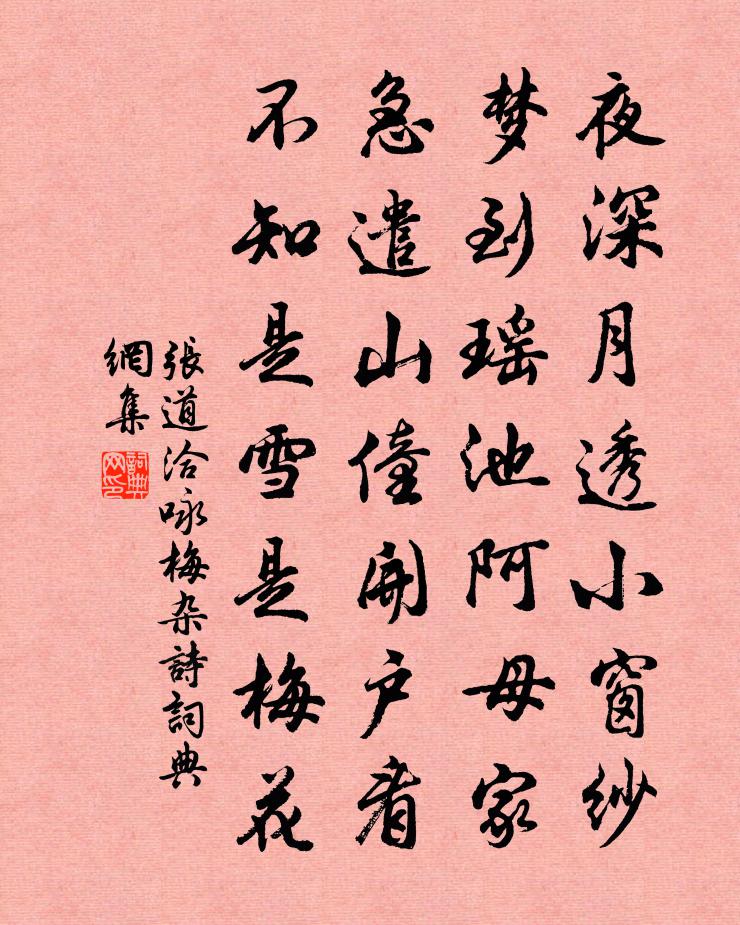 夜深月透小窗紗
梦到瑶池阿母家
急遣山僮開户看
不知是雪是梅花
張道洽咏梅杂詩詞典
網集
詞典
网印